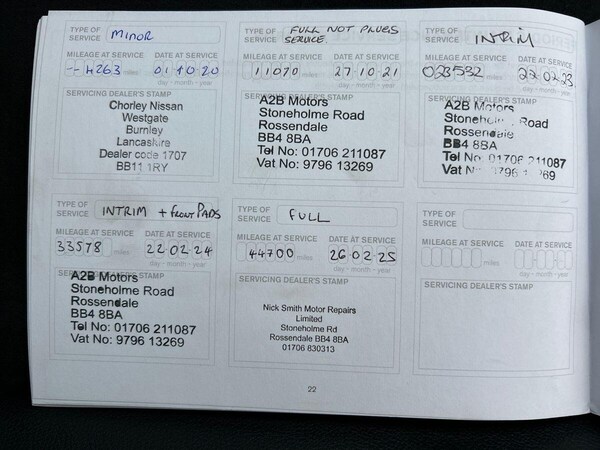 TYPE OF SERVICE MINOR
MILEAGE AT SERVICE DATE AT SERVICE
--4263 miles 01·10·20
day – month – year
SERVICING DEALER'S STAMP
Chorley Nissan
Westgate
Burnley
Lancashire
Dealer code 1707
BB11 1RY
TYPE OF SERVICE FULL NOT PLUGS SERVICE
MILEAGE AT SERVICE DATE AT SERVICE
11070 miles 27·10·21
day – month – year
SERVICING DEALER'S STAMP
A2B Motors
Stoneholme Road
Rossendale
BB4 8BA
Tel No: 01706 211087
Vat No: 9796 13269
TYPE OF SERVICE INTRIM
MILEAGE AT SERVICE DATE AT SERVICE
023532 miles 22·02·23
day – month – year
SERVICING DEALER'S STAMP
A2B Motors
Road
Rossendale
BB4 8BA
Tel No: 01706 211087
TYPE OF SERVICE INTRIM + FRONT PADS
MILEAGE AT SERVICE DATE AT SERVICE
33578 miles 22·02·24
day – month – year
SERVICING DEALER'S STAMP
A2B Motors
Stoneholme Road
Rossendale
BB4 8BA
Tel No: 01706 211087
Vat No: 9796 13269
TYPE OF SERVICE FULL
MILEAGE AT SERVICE DATE AT SERVICE
44700 miles 26·02·25
day – month – year
SERVICING DEALER'S STAMP
Nick Smith Motor Repairs
Limited
Stoneholme Rd
Rossendale BB4 8BA
01706 830313
TYPE OF SERVICE
MILEAGE AT SERVICE DATE AT SERVICE
miles
day – month – year
SERVICING DEALER'S STAMP
22